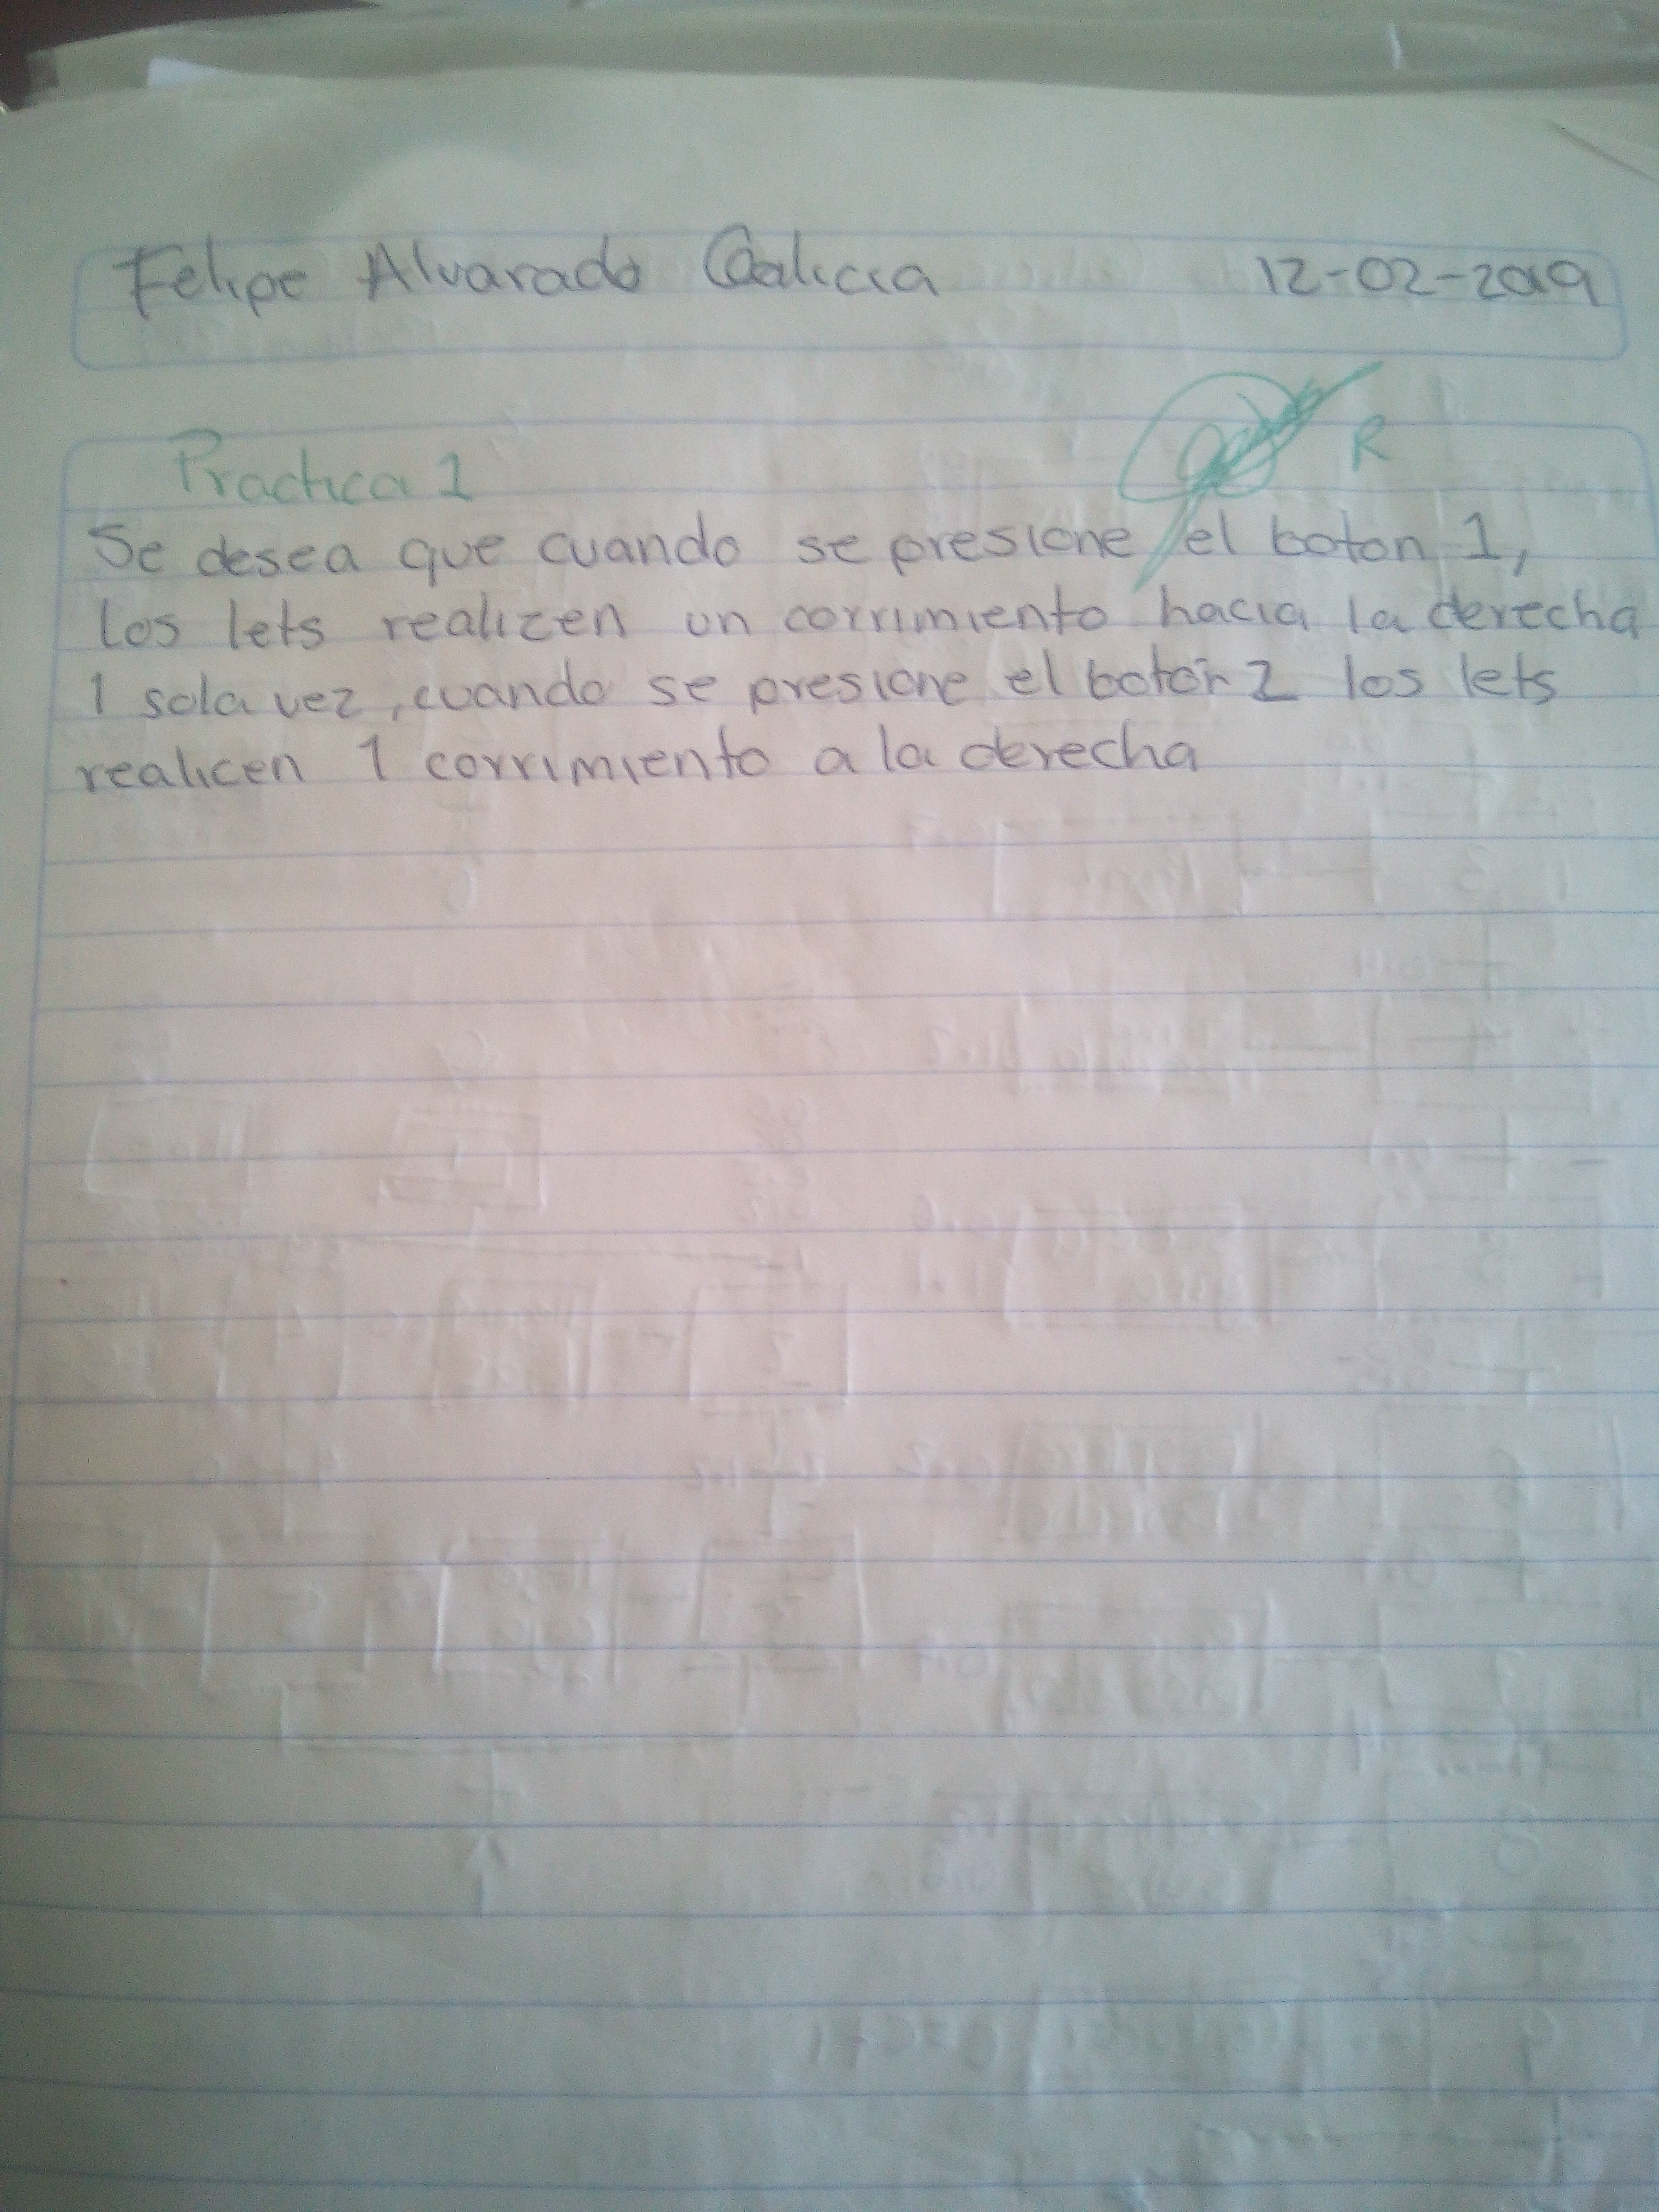 Felipe Alvarado Galicia 12-02-2019
Practica 1 R
Se desea que cuando se presione el boton 1,
los lets realizen un corrimiento hacia la derecha
1 sola vez, cuando se presione el botón 2 los lets
realicen 1 corrimiento a la derecha